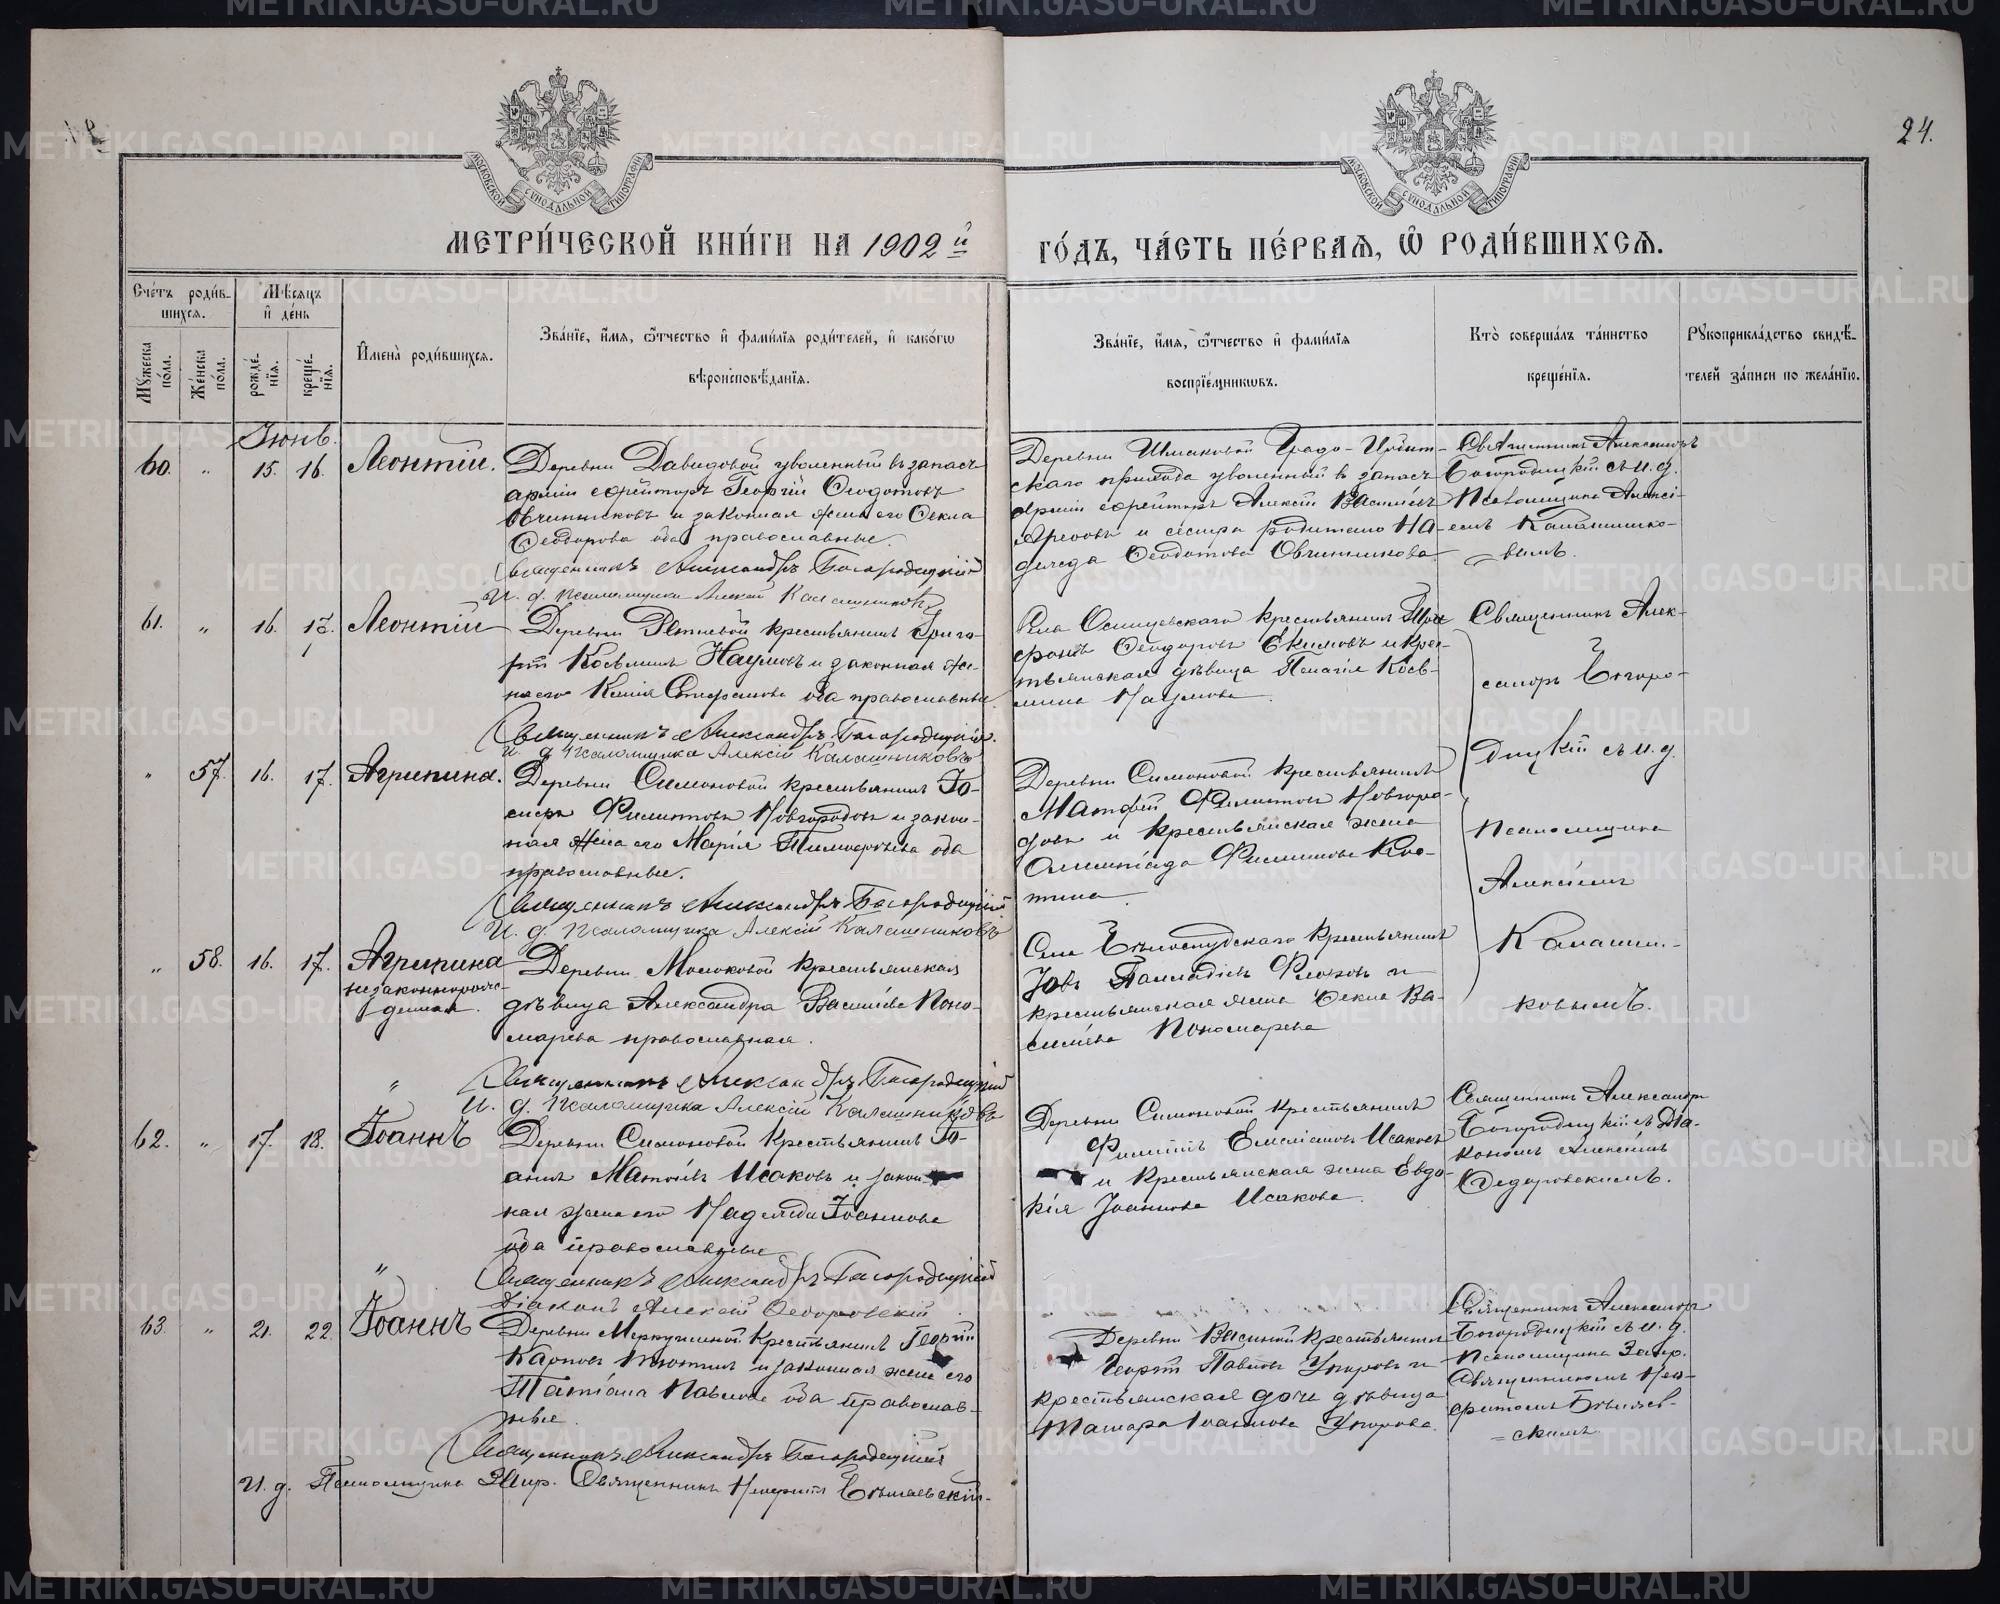 24.
МОСКОВСКОЙ СѴНОДАЛЬНОЙ ТИПОГРАФІИ
МОСКОВСКОЙ СѴНОДАЛЬНОЙ ТИПОГРАФІИ
МЕТРИ́ЧЕСКОЙ КНИ́ГИ НА 1902 й
ГО́ДЪ, ЧА́СТЬ ПЕ́РВАѦ, Ѿ РОДИ́ВШИХСѦ.
Сче́тъ роди́в-
шихсѧ.
Мѣ́сѧцъ
и де́нь
Мꙋ́жеска по́ла.
Же́нска по́ла.
рожде́-
нїѧ.
креще́-
нїѧ.
И҆мена̀ роди́вшихсѧ.
Зва́нїе, и҆́мѧ, ѻ҆́тчество и҆ фами́лїѧ роди́телей, и҆ како́гѡ
вѣроисповѣ́данїѧ.
Зва́нїе, и҆́мѧ, ѻ҆́тчество и҆ фами́лїѧ
воспрїе́мникѡвъ.
Кто̀ соверша́лъ та́инство
креще́нїѧ.
Рꙋкоприкла́дство свидѣ́-
телей за́писи по жела́нїю.
Іюнь.
60. " 15. 16. Леонтій.
Деревни Давидовой уволенный въ запасъ
арміи ефрейторъ Георгій Ѳеодотовъ
Овчинниковъ и законная жена его Ѳекла
Ѳеодорова оба православные.
Священникъ Александръ Богородицкій
И. д. псаломщика Алексій Калашниковъ
Деревни Шмаковой Градо-Ирбит-
скаго прихода уволенный въ запасъ
арміи ефрейторъ Алексій Васильевъ
и сестра родителя На-
дежда Ѳеодотова Овчинникова
Священникъ Александръ
Богородицкій съ и. д.
Псаломщика Алексі-
емъ Калашнико-
вымъ.
61. " 16. 17. Леонтій
Деревни Рѣтневой крестьянинъ Григо-
рій Косьминъ Наумовъ и законная же-
на его Ксенія Стефанова оба православные
Священникъ Александръ Богородицкій.
И. д. Псаломщика Алексій Калашниковъ
Села Осинцевскаго крестьянинъ
Ѳеодоровъ Екимовъ и крес-
тьянская дѣвица Пелагія Косьм-
мина Наумова.
Священникъ Алек-
сандръ Богоро-
дицкій съ и. д.
Псаломщика
Алексіемъ
Калашни-
ковымъ.
" 57. 16. 17. Агрипина.
Деревни Симоновой крестьянинъ Іо-
сифъ Филиповъ Новгородовъ и закон-
ная жена его Марія Тимоѳеева оба
православные.
Священникъ Александръ Богородицкій
И. д. Псаломщика Алексій Калашниковъ
Деревни Симоновой крестьянинъ
Матфей Филиповъ Новгоро-
довъ и крестьянская жена
Олимпіада Филипова Кос-
тина
" 58. 16. 17. Агрипина
незаконнорож-
денная.
Деревни Молоковой крестьянская
дѣвица Александра Васильева Поно-
марева православная.
Священникъ Александръ Богородицкій
И. д. Псаломщика Алексій Калашниковъ
Села Бѣлослудскаго крестьянинъ
Іовъ Палладіевъ и
крестьянская жена Ѳекла Ва-
сильева Пономарева
"
62. " 17. 18. Іоаннъ
Деревни Симоновой крестьянинъ Іо-
аннъ Матвѣевъ Исаковъ и закон-
ная жена его Надежда Іоаннова
оба православные
Священникъ Александръ Богородицкій
Діаконъ Алексій Ѳедоровскій
Деревни Симоновой крестьянинъ
Филиппъ Емеліановъ Исаковъ
и крестьянская жена Евдо-
кія Іоаннова Исакова.
Священникъ Александръ
Богородицкій съ Діа-
кономъ Алексіемъ
Ѳедоровскимъ.
"
63. " 21. 22. Іоаннъ
Деревни Меркушиной крестьянинъ Георгій
Карповъ и законная жена его
Татіана Павлова оба православ-
ные
Священникъ Александръ Богородицкій
И. д. Псаломщика Запр. Священникъ Неофитъ
Деревни Васиной крестьянинъ
Георгій Павловъ Упоровъ и
крестьянская дочь дѣвица
Тамара Іоаннова Упорова.
Священникъ Александръ
Богородицкій съ и. д.
Псаломщика Запр.
Священникомъ Нео-
фитомъ
скимъ
METRIKI.GASO-URAL.RU